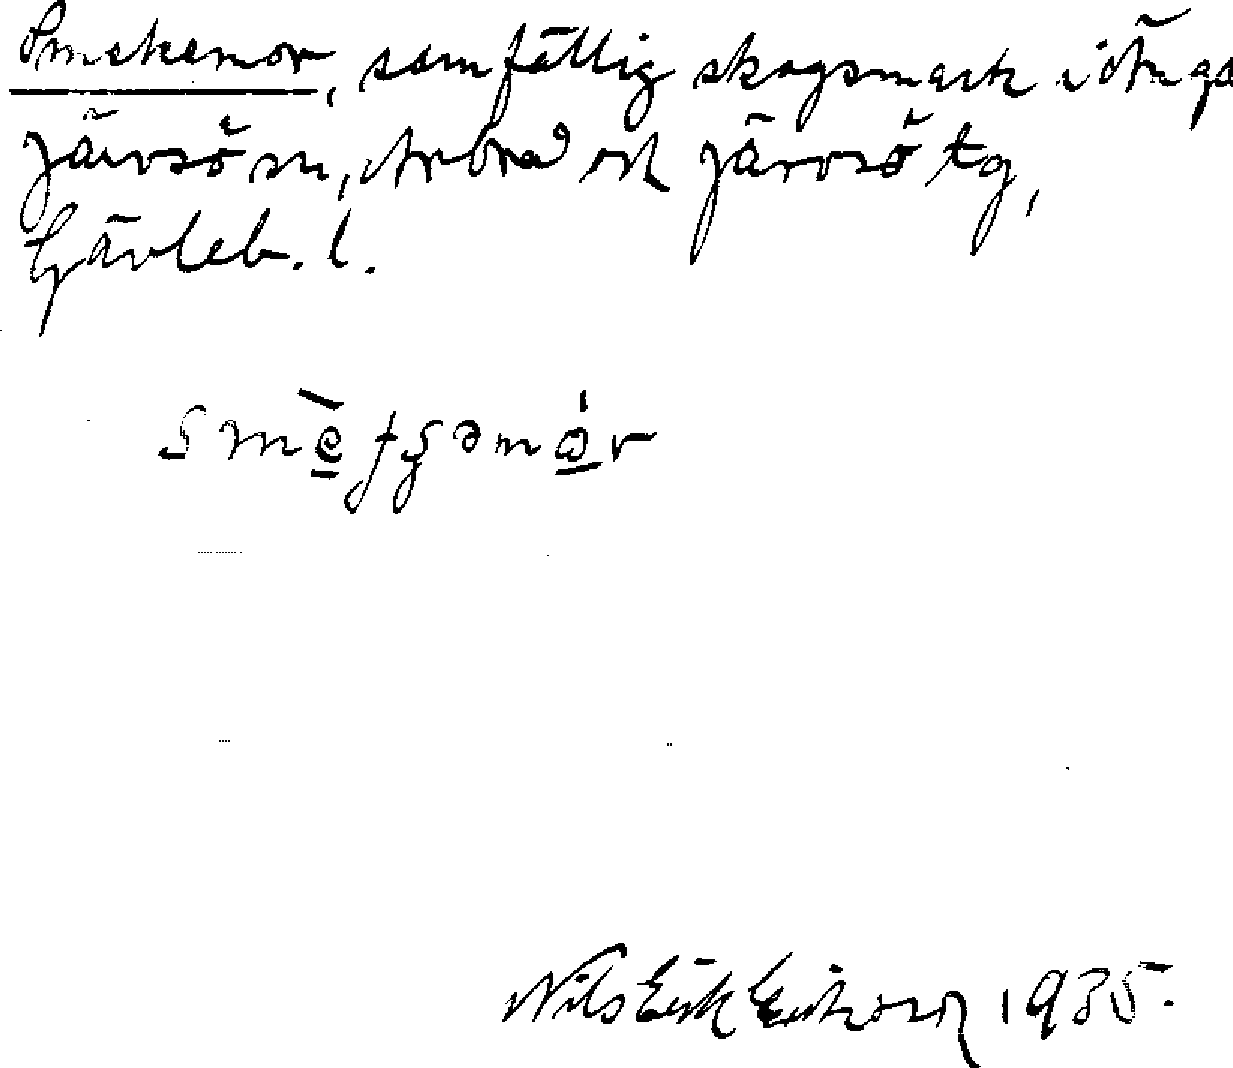 Smekamor, samfällig skogsmark i Änga
Järvsö sn, Arbrå och Järvsö tg,
Gävleb. l.
Nils Erik Eriksson 1935.